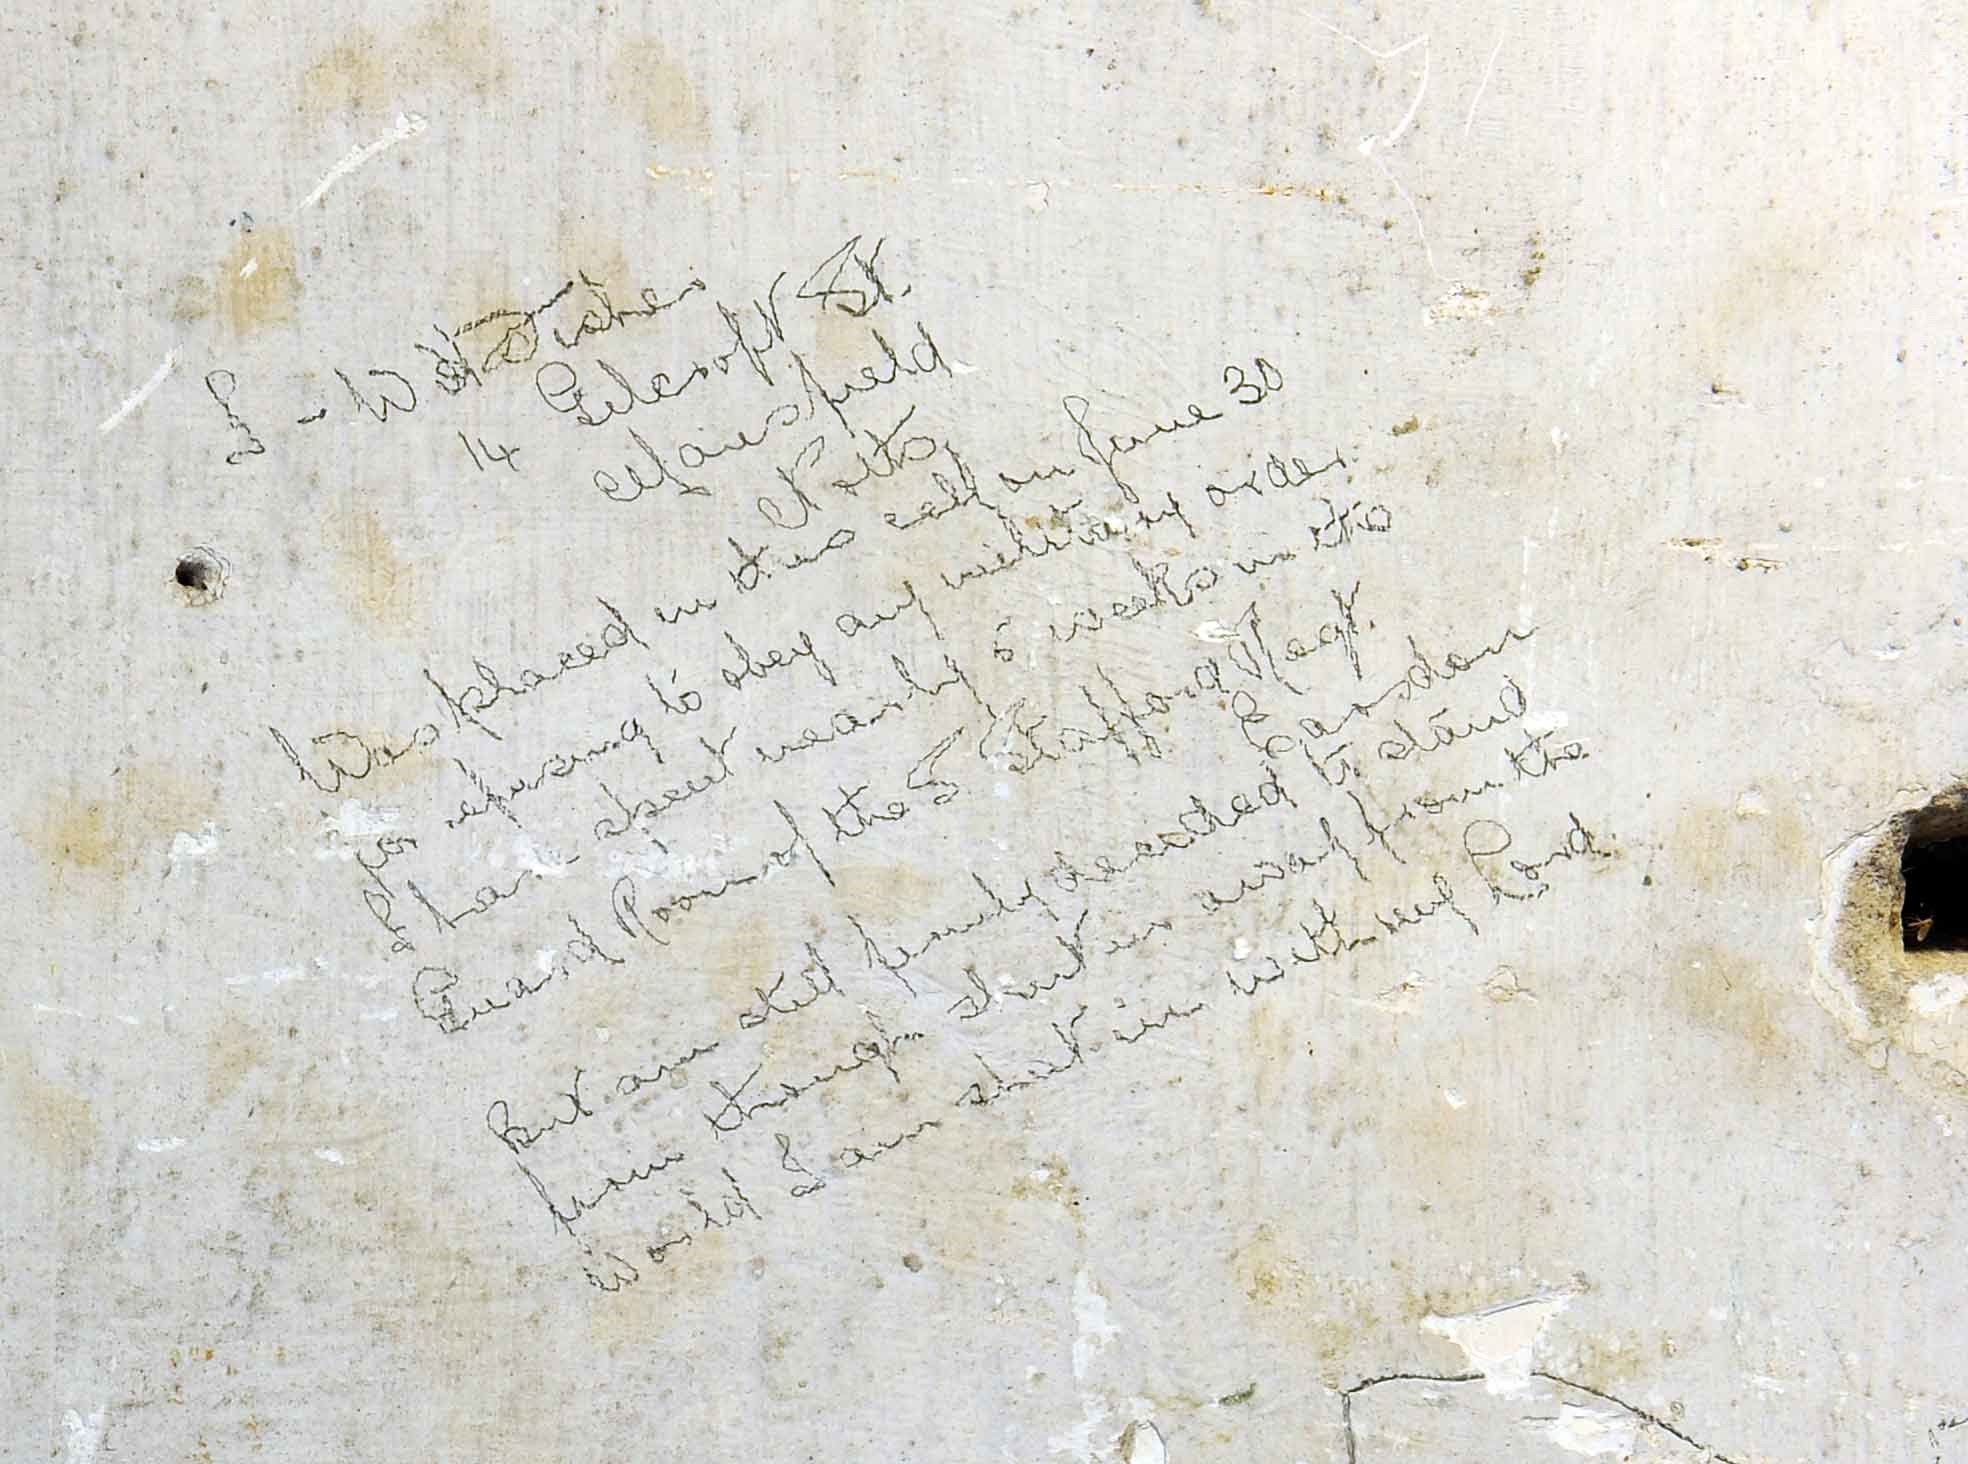 I - W
14 Gilcroft St.
Mansfield
Notts
Was placed in this cell on June 30
for refusing to obey any military order.
I have spent nearly 5 weeks in the
Guard Room of the Stafford Regt.
but am still firmly decided to stand
firm though shut in away from the
world I am shut in with my Lord.